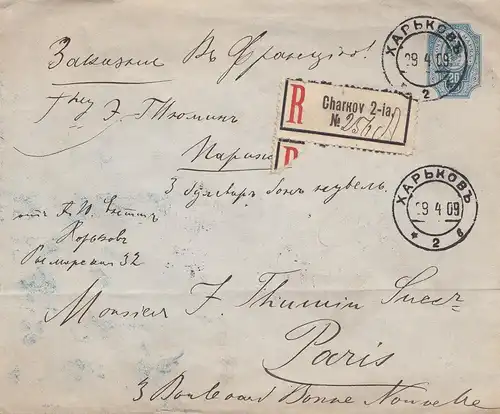 Заказное Въ Францію!
ХАРЬКОВЪ
29 4 09
2
20
Г-ну Э. Тюминъ
R
Charkov 2-ia
№
Парижъ
R
3 бульваръ бонъ нувель.
ХАРЬКОВЪ
29 4 09
* 2 в
отъ А. И.
Харьковъ
Рымарская 32
Monsieur F. Thumin
Paris
3 Boulevard Bonne Nouvelle